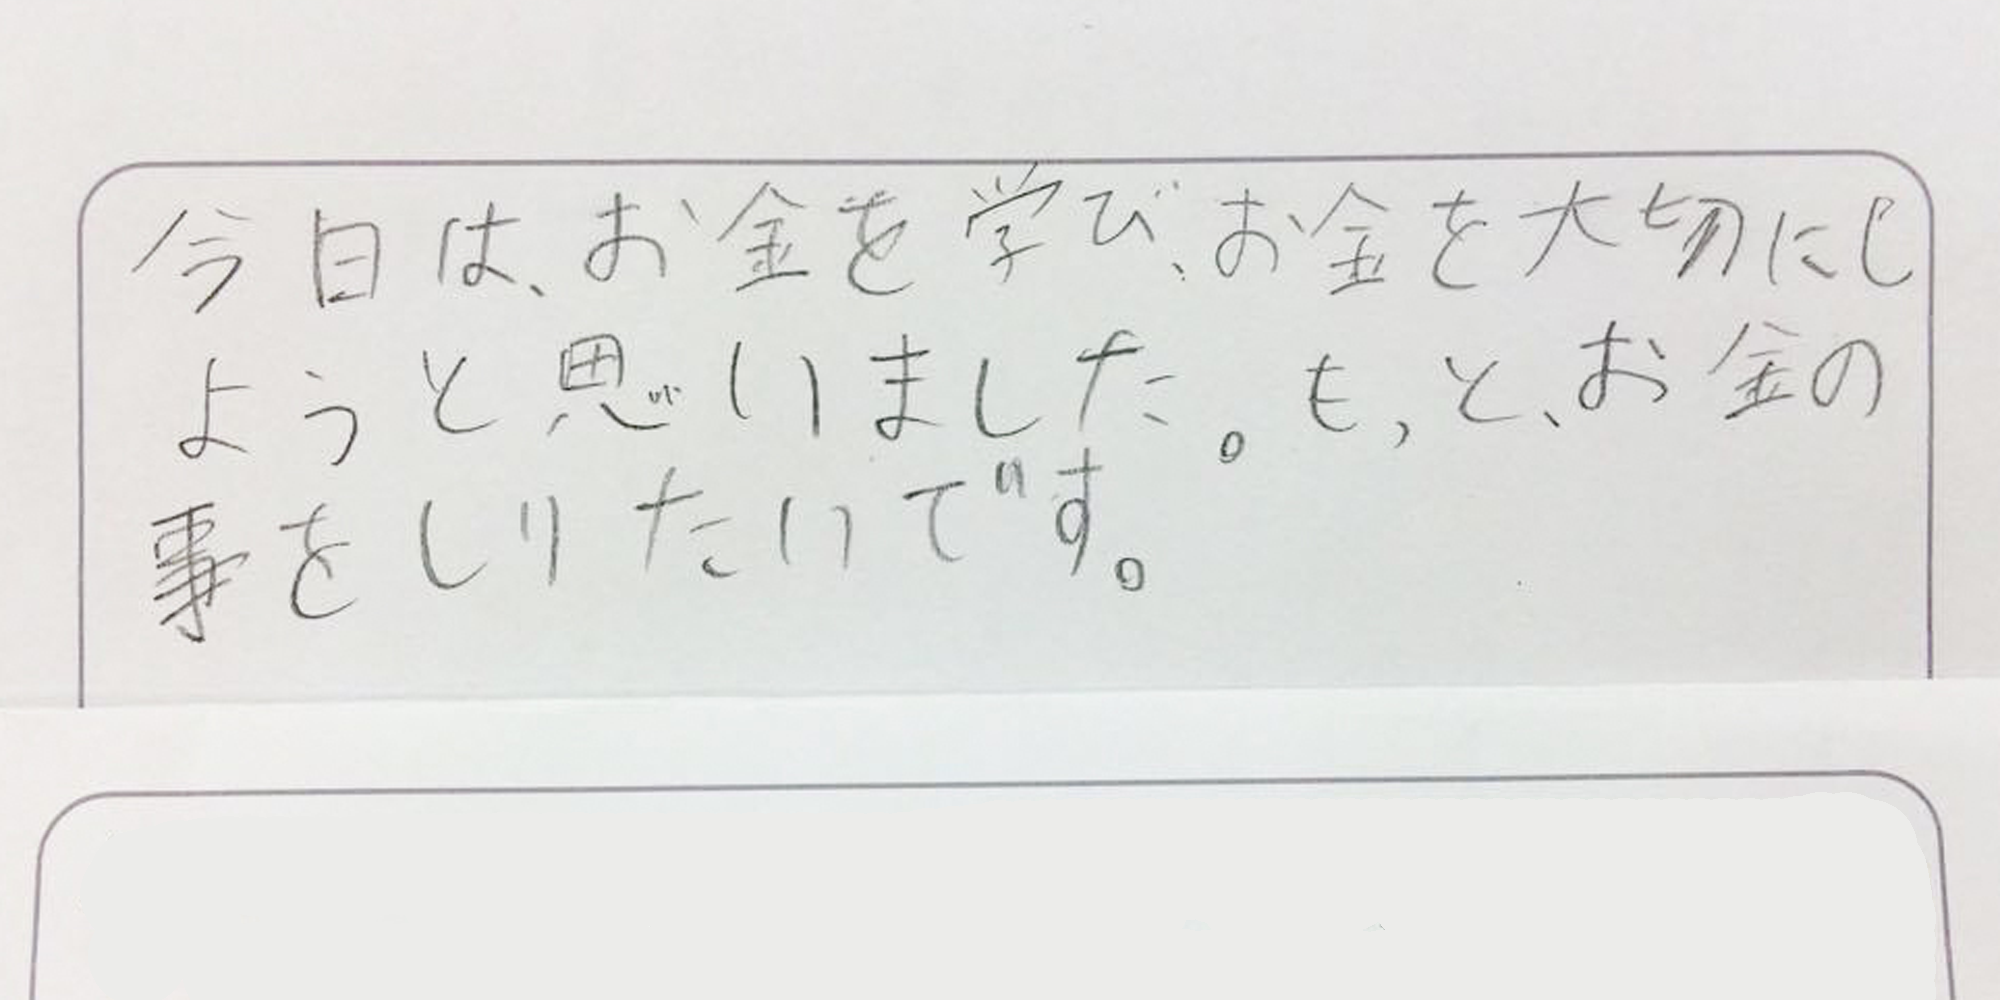 今日は、お金を学び、お金を大切にし
ようと思いました。もっと、お金の
事をしりたいです。